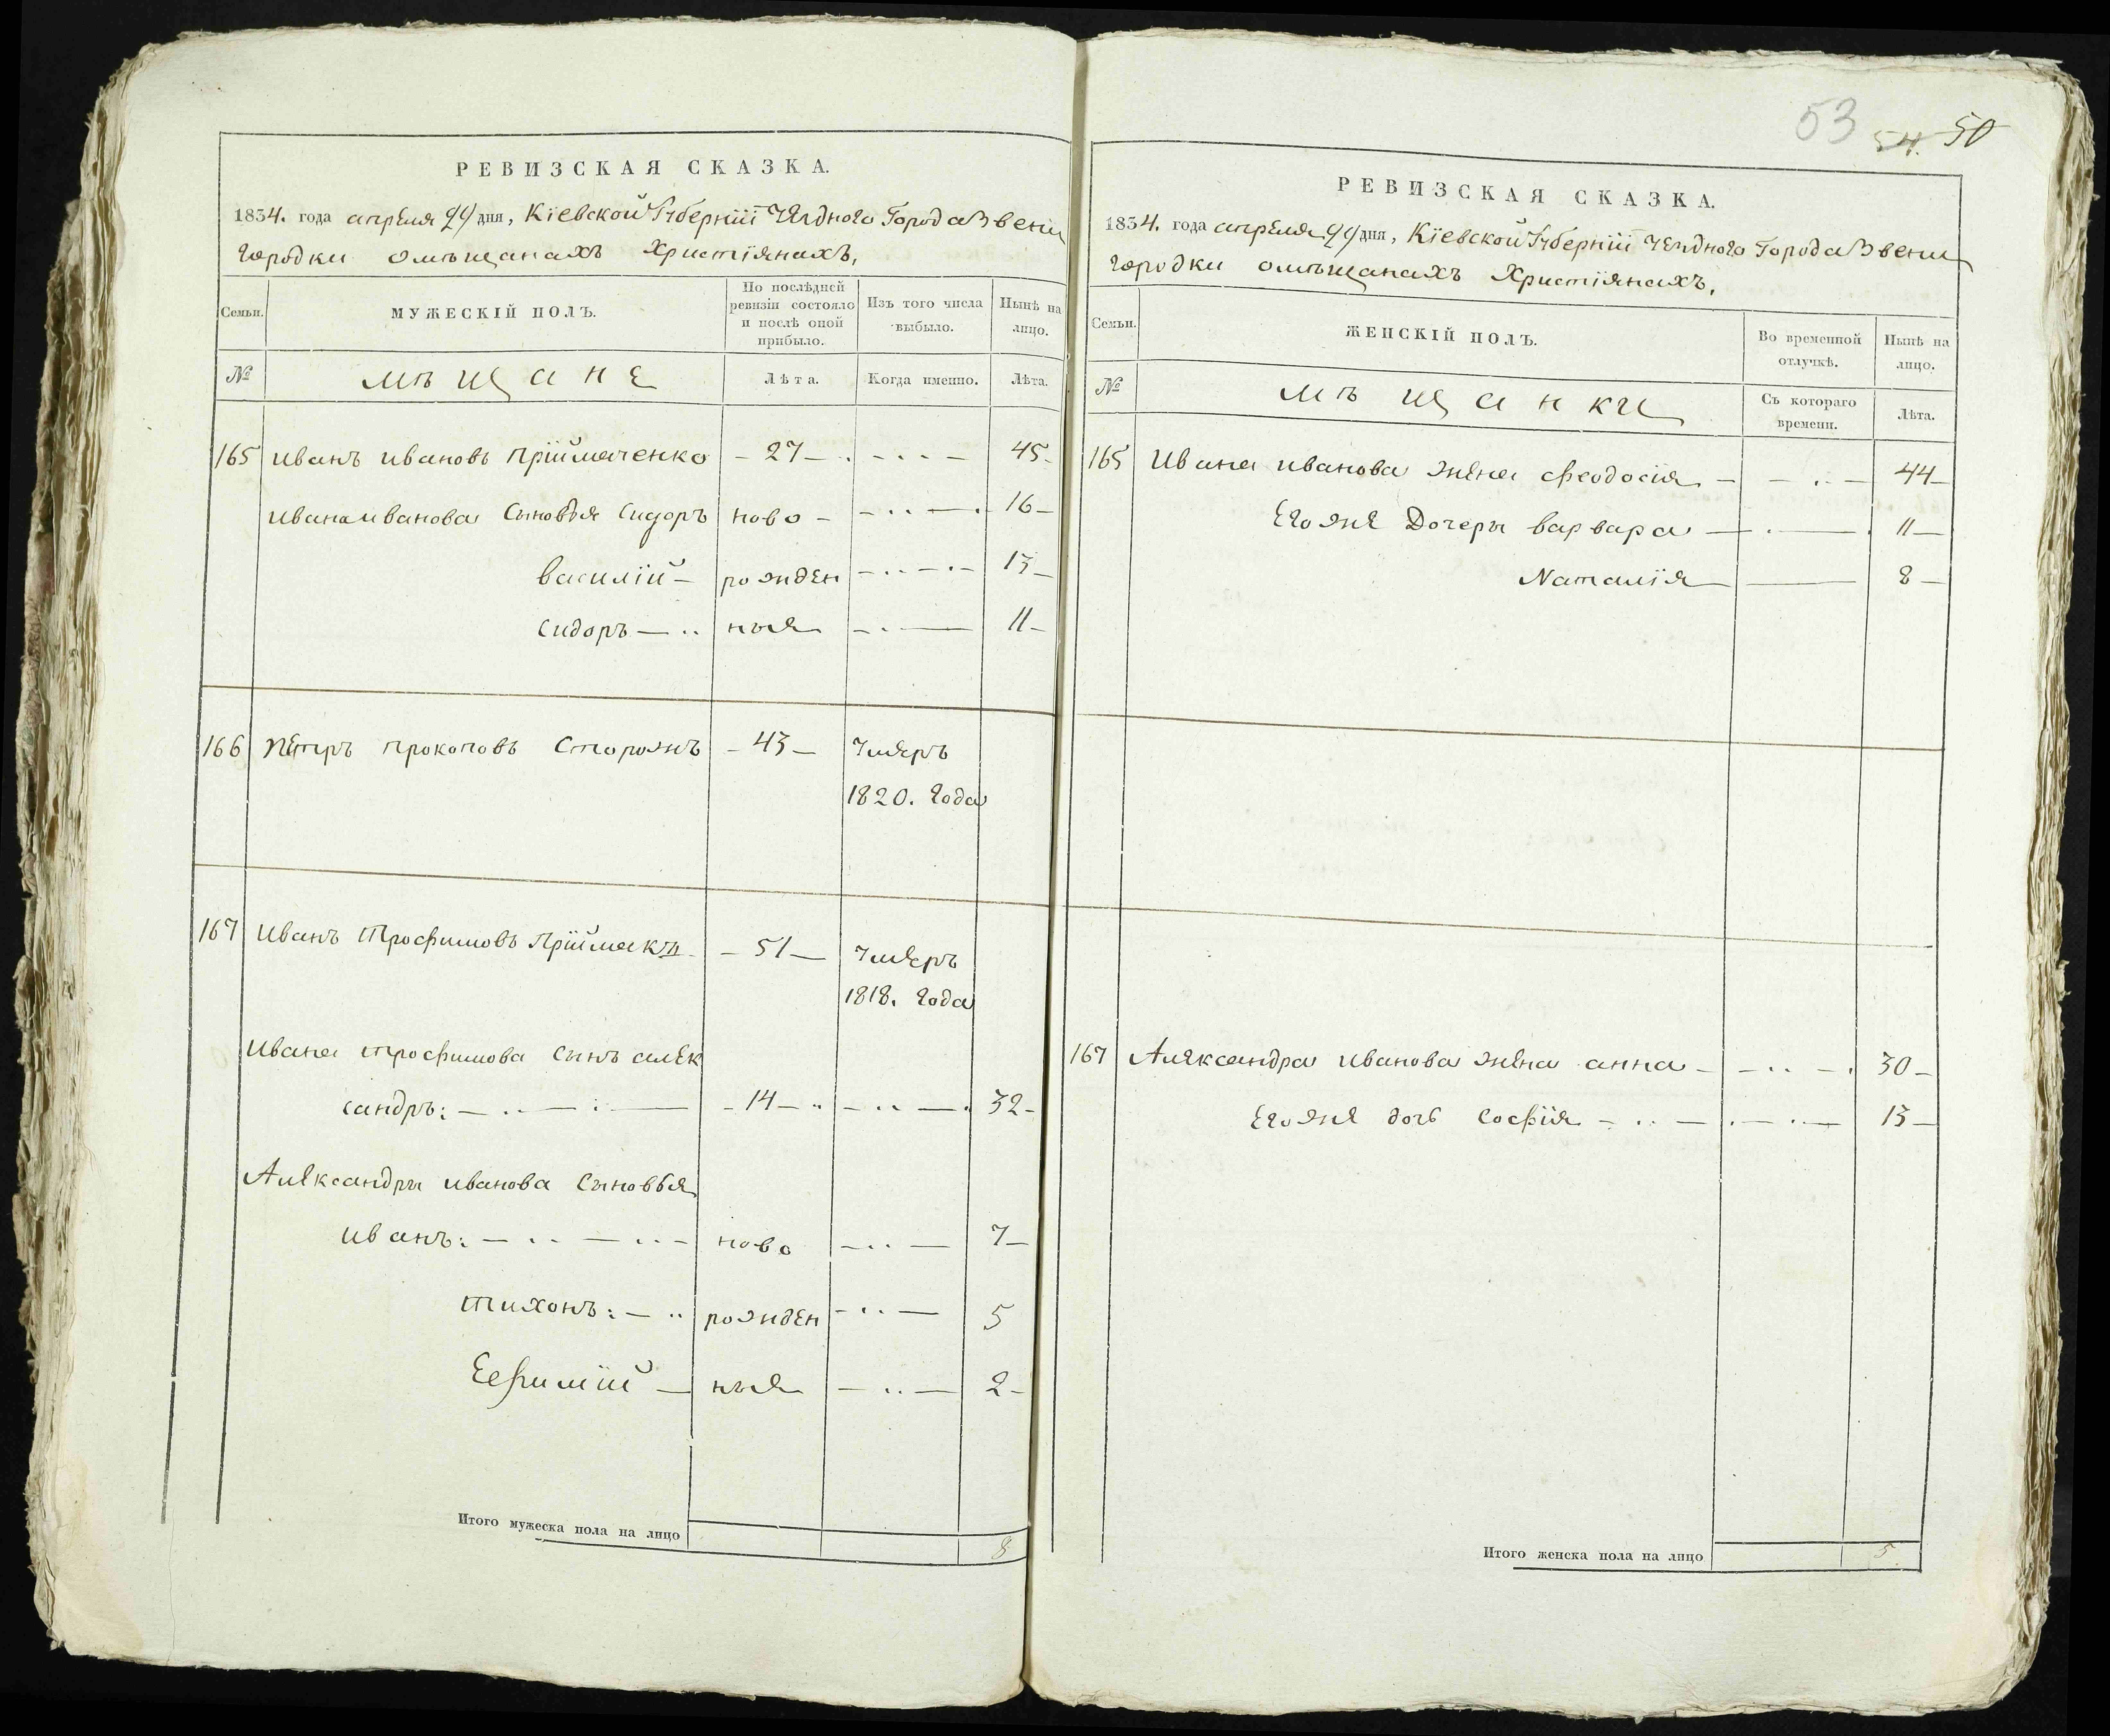 53 54. 50
РЕВИЗСКАЯ СКАЗКА.
1834. года апреля 29 дня, Кіевской Губерніи Уезднаго Города Звени
городки омѣщанахъ Христіянахъ,
Семьи.
МУЖЕСКІЙ ПОЛЪ.
По послѣдней ревизіи состояло и послѣ оной прибыло.
Изъ того числа выбыло.
Нынѣ на лицо.
№
мѣщане
Лѣта.
Когда именно.
Лѣта.
165 Иванъ ивановъ Пріймаченко – 27 – 45
ивана иванова Сыновья Сидоръ ново – 16
василій – рожден 13
сидоръ – ныя 11
166 Петръ прокоповъ Сторожъ – 43 – Умеръ
1820. года
167 Иванъ Трофимовъ Пріймакъ – 51 – Умеръ
1818. года
Ивана трофимова сынъ алек
сандръ: – 14 – 32
Александры иванова Сыновья
иванъ: ново 7
тихонъ: рожден 5
Еефимій – ныя 2
Итого мужеска пола на лицо 8
РЕВИЗСКАЯ СКАЗКА.
1834. года апреля 29 дня, Кіевской Губерніи Уезднаго Города Звени
городки омѣщанахъ Христіянахъ,
Семьи.
ЖЕНСКІЙ ПОЛЪ.
Во временной отлучкѣ.
Нынѣ на лицо.
№
мѣщанки
Съ котораго времени.
Лѣта.
165 Ивана иванова жена феодосія – 44
Его же Дочеры варвара – 11
Наталія – 8
167 Александра иванова жена анна – 30
Его же дочь софія – 13
Итого женска пола на лицо 5